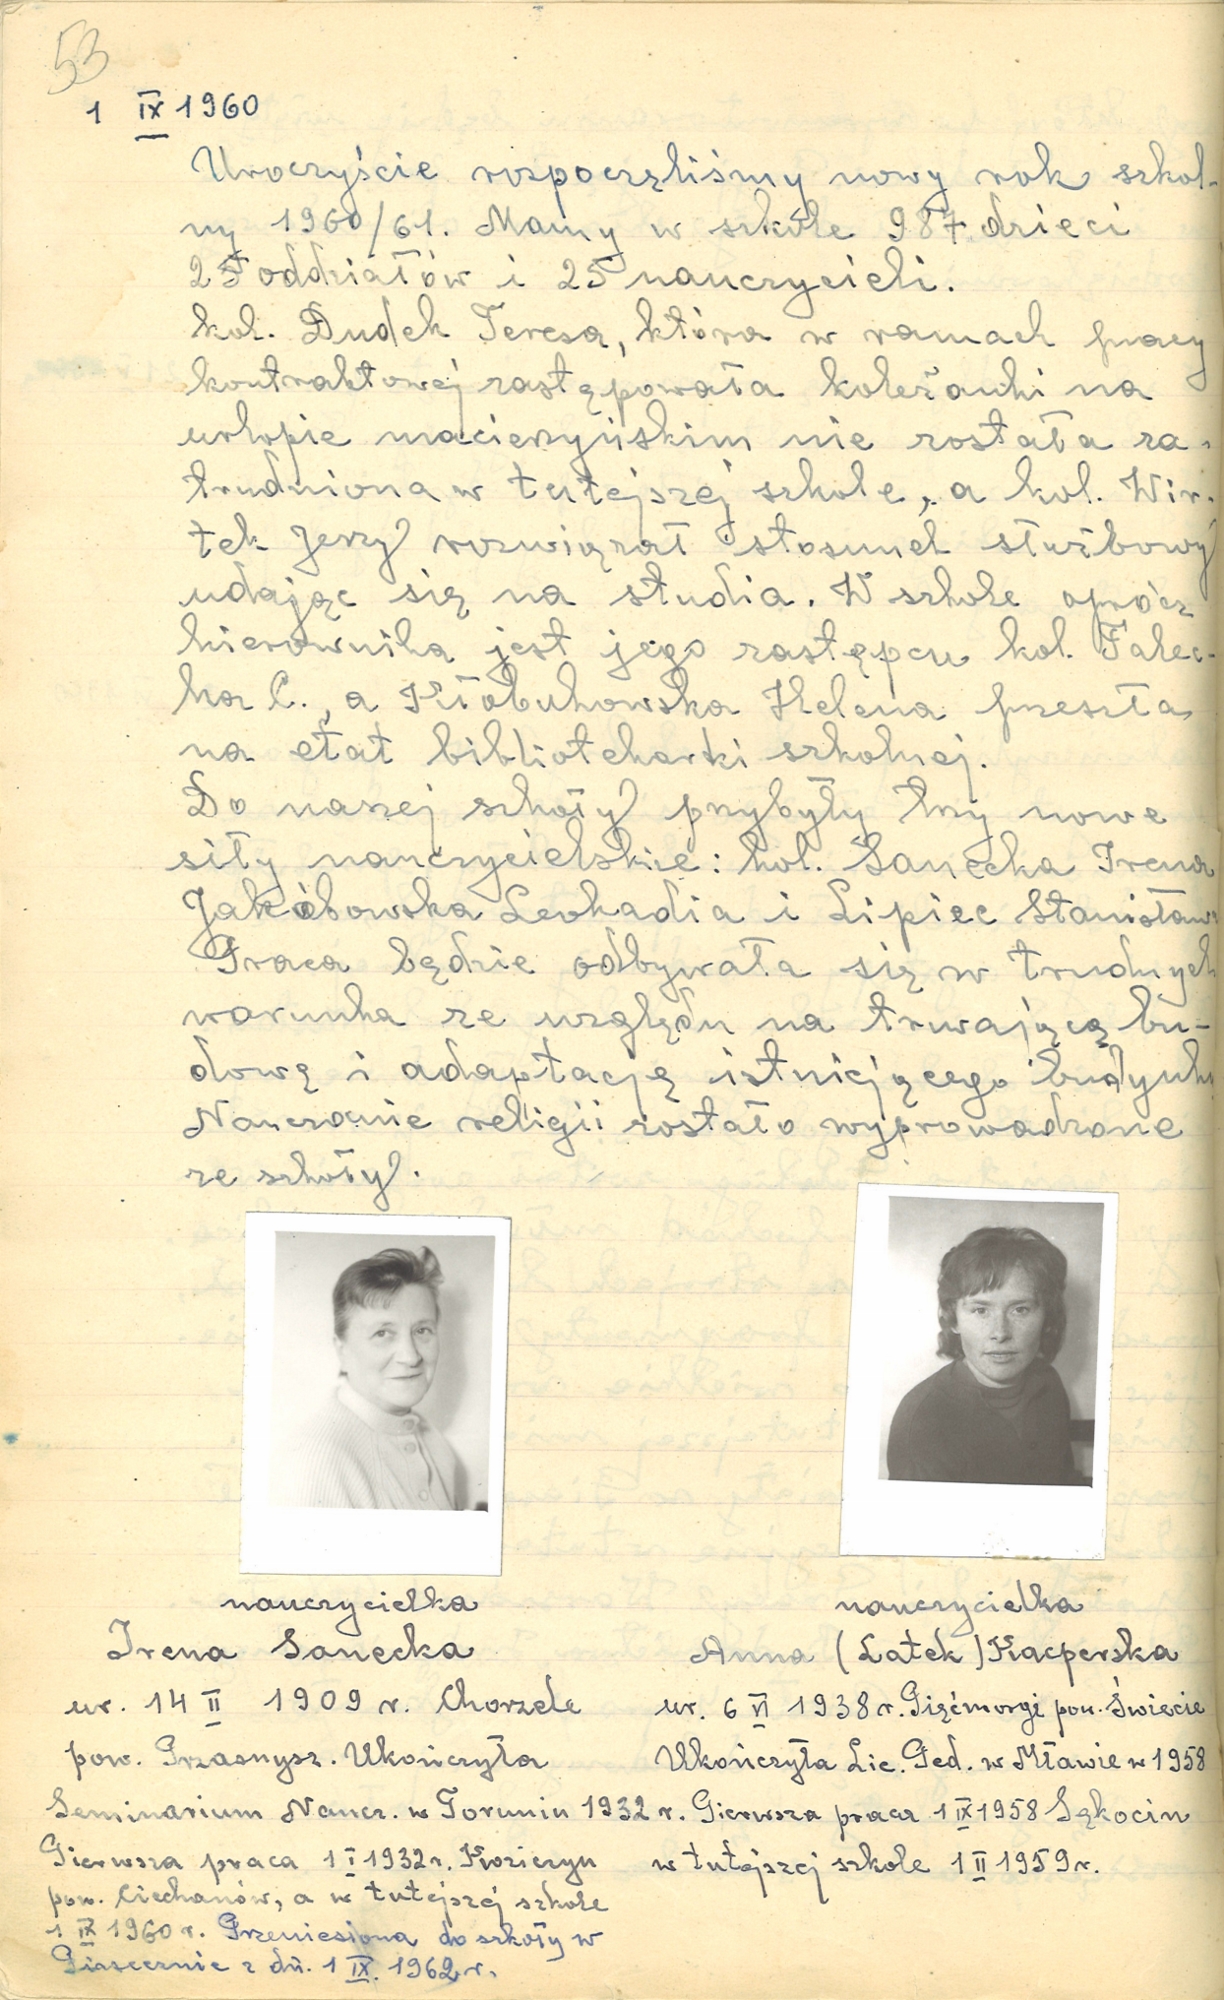 53
1 IX 1960
Uroczyście rozpoczęliśmy nowy rok szkol-
ny 1960/61. Mamy w szkole 987 dzieci
25 oddziałów i 25 nauczycieli.
kol. Dudek Teresa, która w ramach pracy
kontraktowej zastępowała koleżanki na
urlopie macierzyńskim nie została za-
trudniona w tutejszej szkole, a kol. Wir-
tek Jerzy rozwiązał stosunek służbowy
udając się na studia. W szkole oprócz
kierownika jest jego zastępcu kol. Falec-
ka C., a Kłobukowska Helena przeszła
na etat bibliotekarki szkolnej.
Do naszej szkoły przybyły trzy nowe
siły nauczycielskie: kol. Sanecka Irena
Jakóbowska Leokadia i Lipiec Stanisława
Praca będzie odbywała się w trudnych
warunka ze względu na trwającą bu-
dowę i adaptację istniejącego budynku
Nauczanie religii zostało wyprowadzone
ze szkoły.
nauczycielka
Irena Sanecka
ur. 14 II 1909 r. Chorzele
pow. Przasnysz. Ukończyła
Seminarium Naucz. w Toruniu 1932 r.
Pierwsza praca 1 I 1932 r.
pow. Ciechanów, a w tutejszej szkole
1 IX 1960 r. Przeniesiona do szkoły w
z dn. 1 IX. 1962 r.
nauczycielka
Anna (Latek) Kacperska
ur. 6 VI 1938 r. Pięćmorgi pow. Świecie
Ukończyła Lic. Ped. w Mławie w 1958
Pierwsza praca 1 IX 1958 Sękocin
w tutejszej szkole 1 II 1959 r.